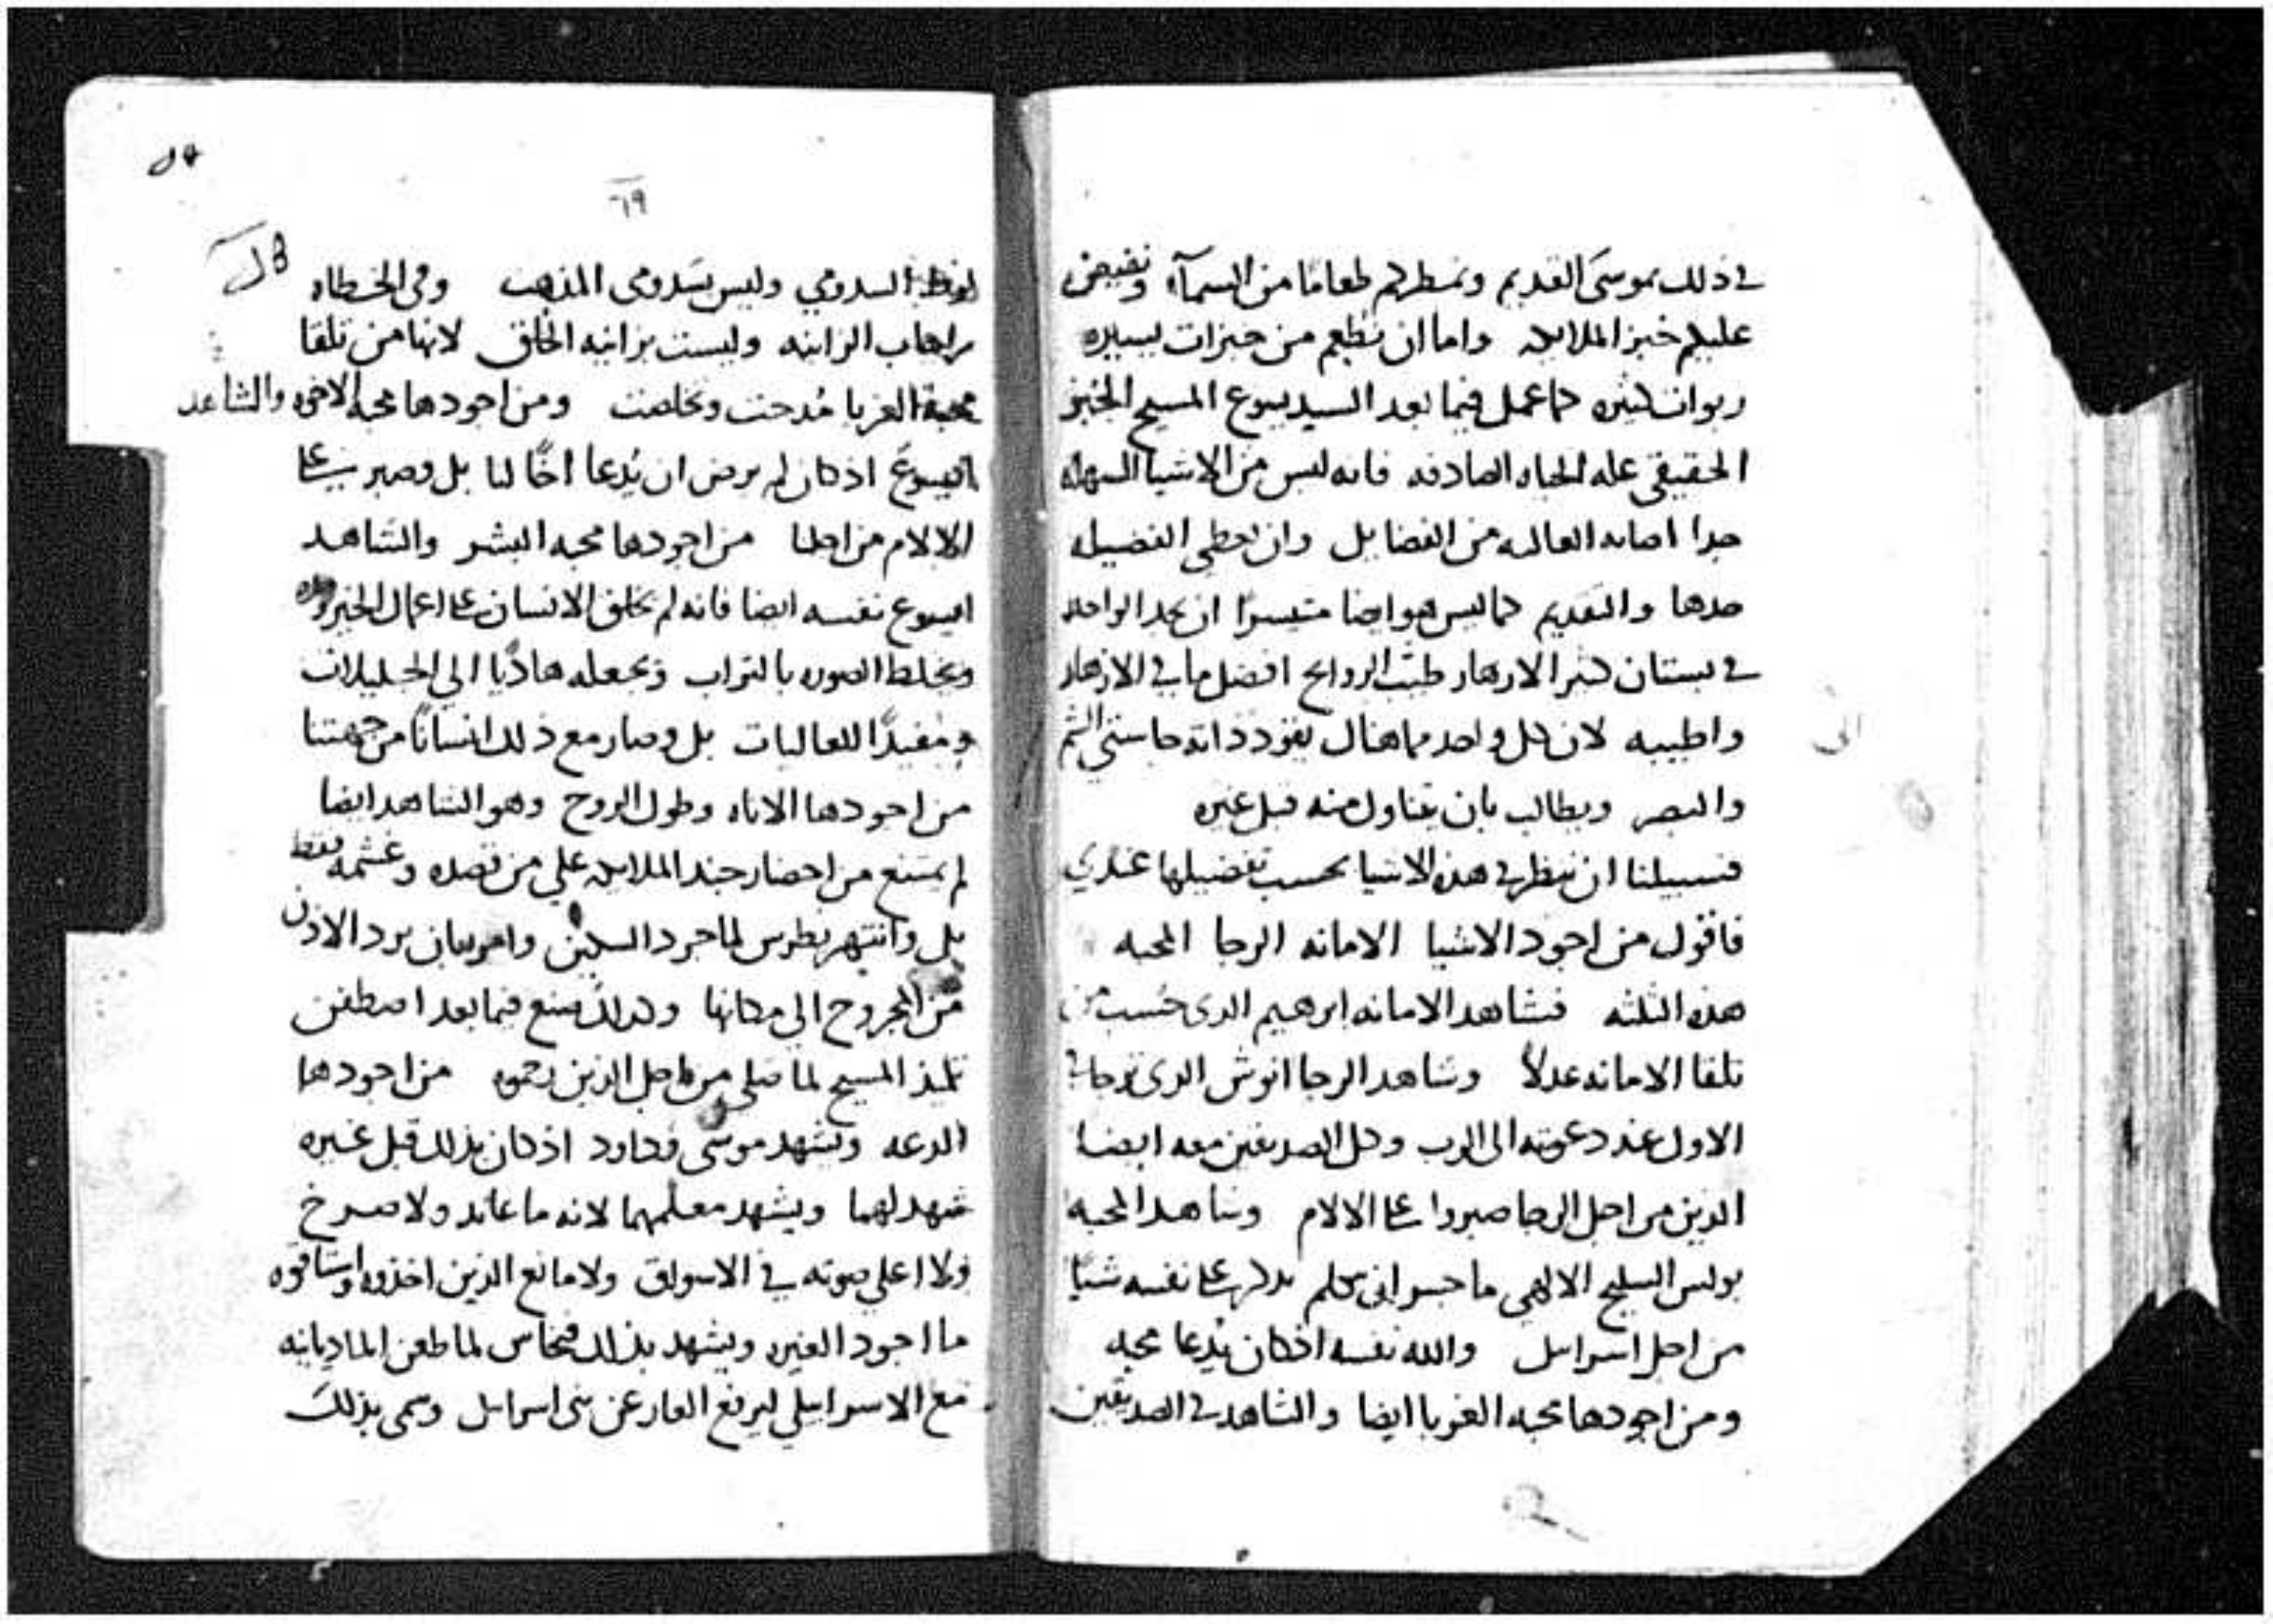 في ذلك بموسى القديم ونمطرهم طعامًا من السمآء ونفيض
عليهم خبز الملايكه واما ان نطعم من خبزات يسيره
ربوات كثيره كما عمل فيما بعد السيد يسوع المسيح الخبز
الحقيقي علة الحياه الصادقه فانه ليس من الاشيا السهله
جدا اصابه الغالبه من الفضايل وان نعطي الفضيله
حدها والتقديم كما ليس هو ايضا متيسرًا ان يجد الواحد
في بستان كثير الازهار طيب الروايح افضل ما في الازهار
واطيبه لان كل واحد مما هناك يقود ذاته حاستي الشم
والبصر ويطالب بان يتناول منه قبل غيره
فسبيلنا ان ننظر في هذه الاشيا بحسب تفضيلها عندي
فاقول من اجود الاشيا الامانه الرجا المحبه
هذه الثلثه فشاهد الامانه ابرهيم الذي حسب من
تلقا الامانه عدلاً وشاهد الرجا انوش الذي ترجا في
الاول عند دعوته الى الرب وكل الصديقين معه ايضا
الذين من اجل الرجا صبروا على الالام وشاهد المحبه
بولس السليح الالهي ما جسر ان يتكلم بذلك على نفسه شيًا
من اجل اسرايل والله نفسه اذ كان يُدعا محبه
ومن اجودها محبه الغربا ايضا والشاهد في الصديقين
٦٩
لوط السدومي وليس سَدومي المذهب وفي الخطاه
راحاب الزانيه وليست بزانيه الخلق لانها من تلقا
محبة الغربا مُدحت وتخلصت ومن اجودها محبه الاخوه والشاهد
ايسوع اذ كان لم يرض ان يُدعا اخًا لنا بل وصبر على
الالام من اجلنا من اجودها محبه البشر والشاهد
ايسوع نفسه ايضا فانه لم يخلق الانسان على اعمال الخير
ويخلط الصوره بالتراب ويجعله هاديًا الي الجليلات
ومفيدًا للعاليات بل وصار مع ذلك انسانًا من جهتنا
من اجودها الاناه وطول الروح وهو الشاهد ايضا
لم يمتنع من احضار جند الملايكه علي من قصده وغشمه فقط
بل وانتهر بطرس لما جرد السكين وامر بان يرد الاذن
من المجروح الي مكانها وكذلك صنع فيما بعد اصطفن
تلميذ المسيح لما صلي من اجل الذين رجموه من اجودها
الدعه ويشهد موسى وداود اذ كان بذلك قبل غيره
شهد لهما ويشهد معلمهما لانه ما عاند ولا صرخ
ولا اعلي صوته في الاسواق ولا مانع الذين اخذوه واستاقوه
ما اجود الغيره ويشهد بذلك فنحاس لما طعن الماديانيه
مع الاسراييلي ليرفع العار عن بني اسرايل وسمي بذلك